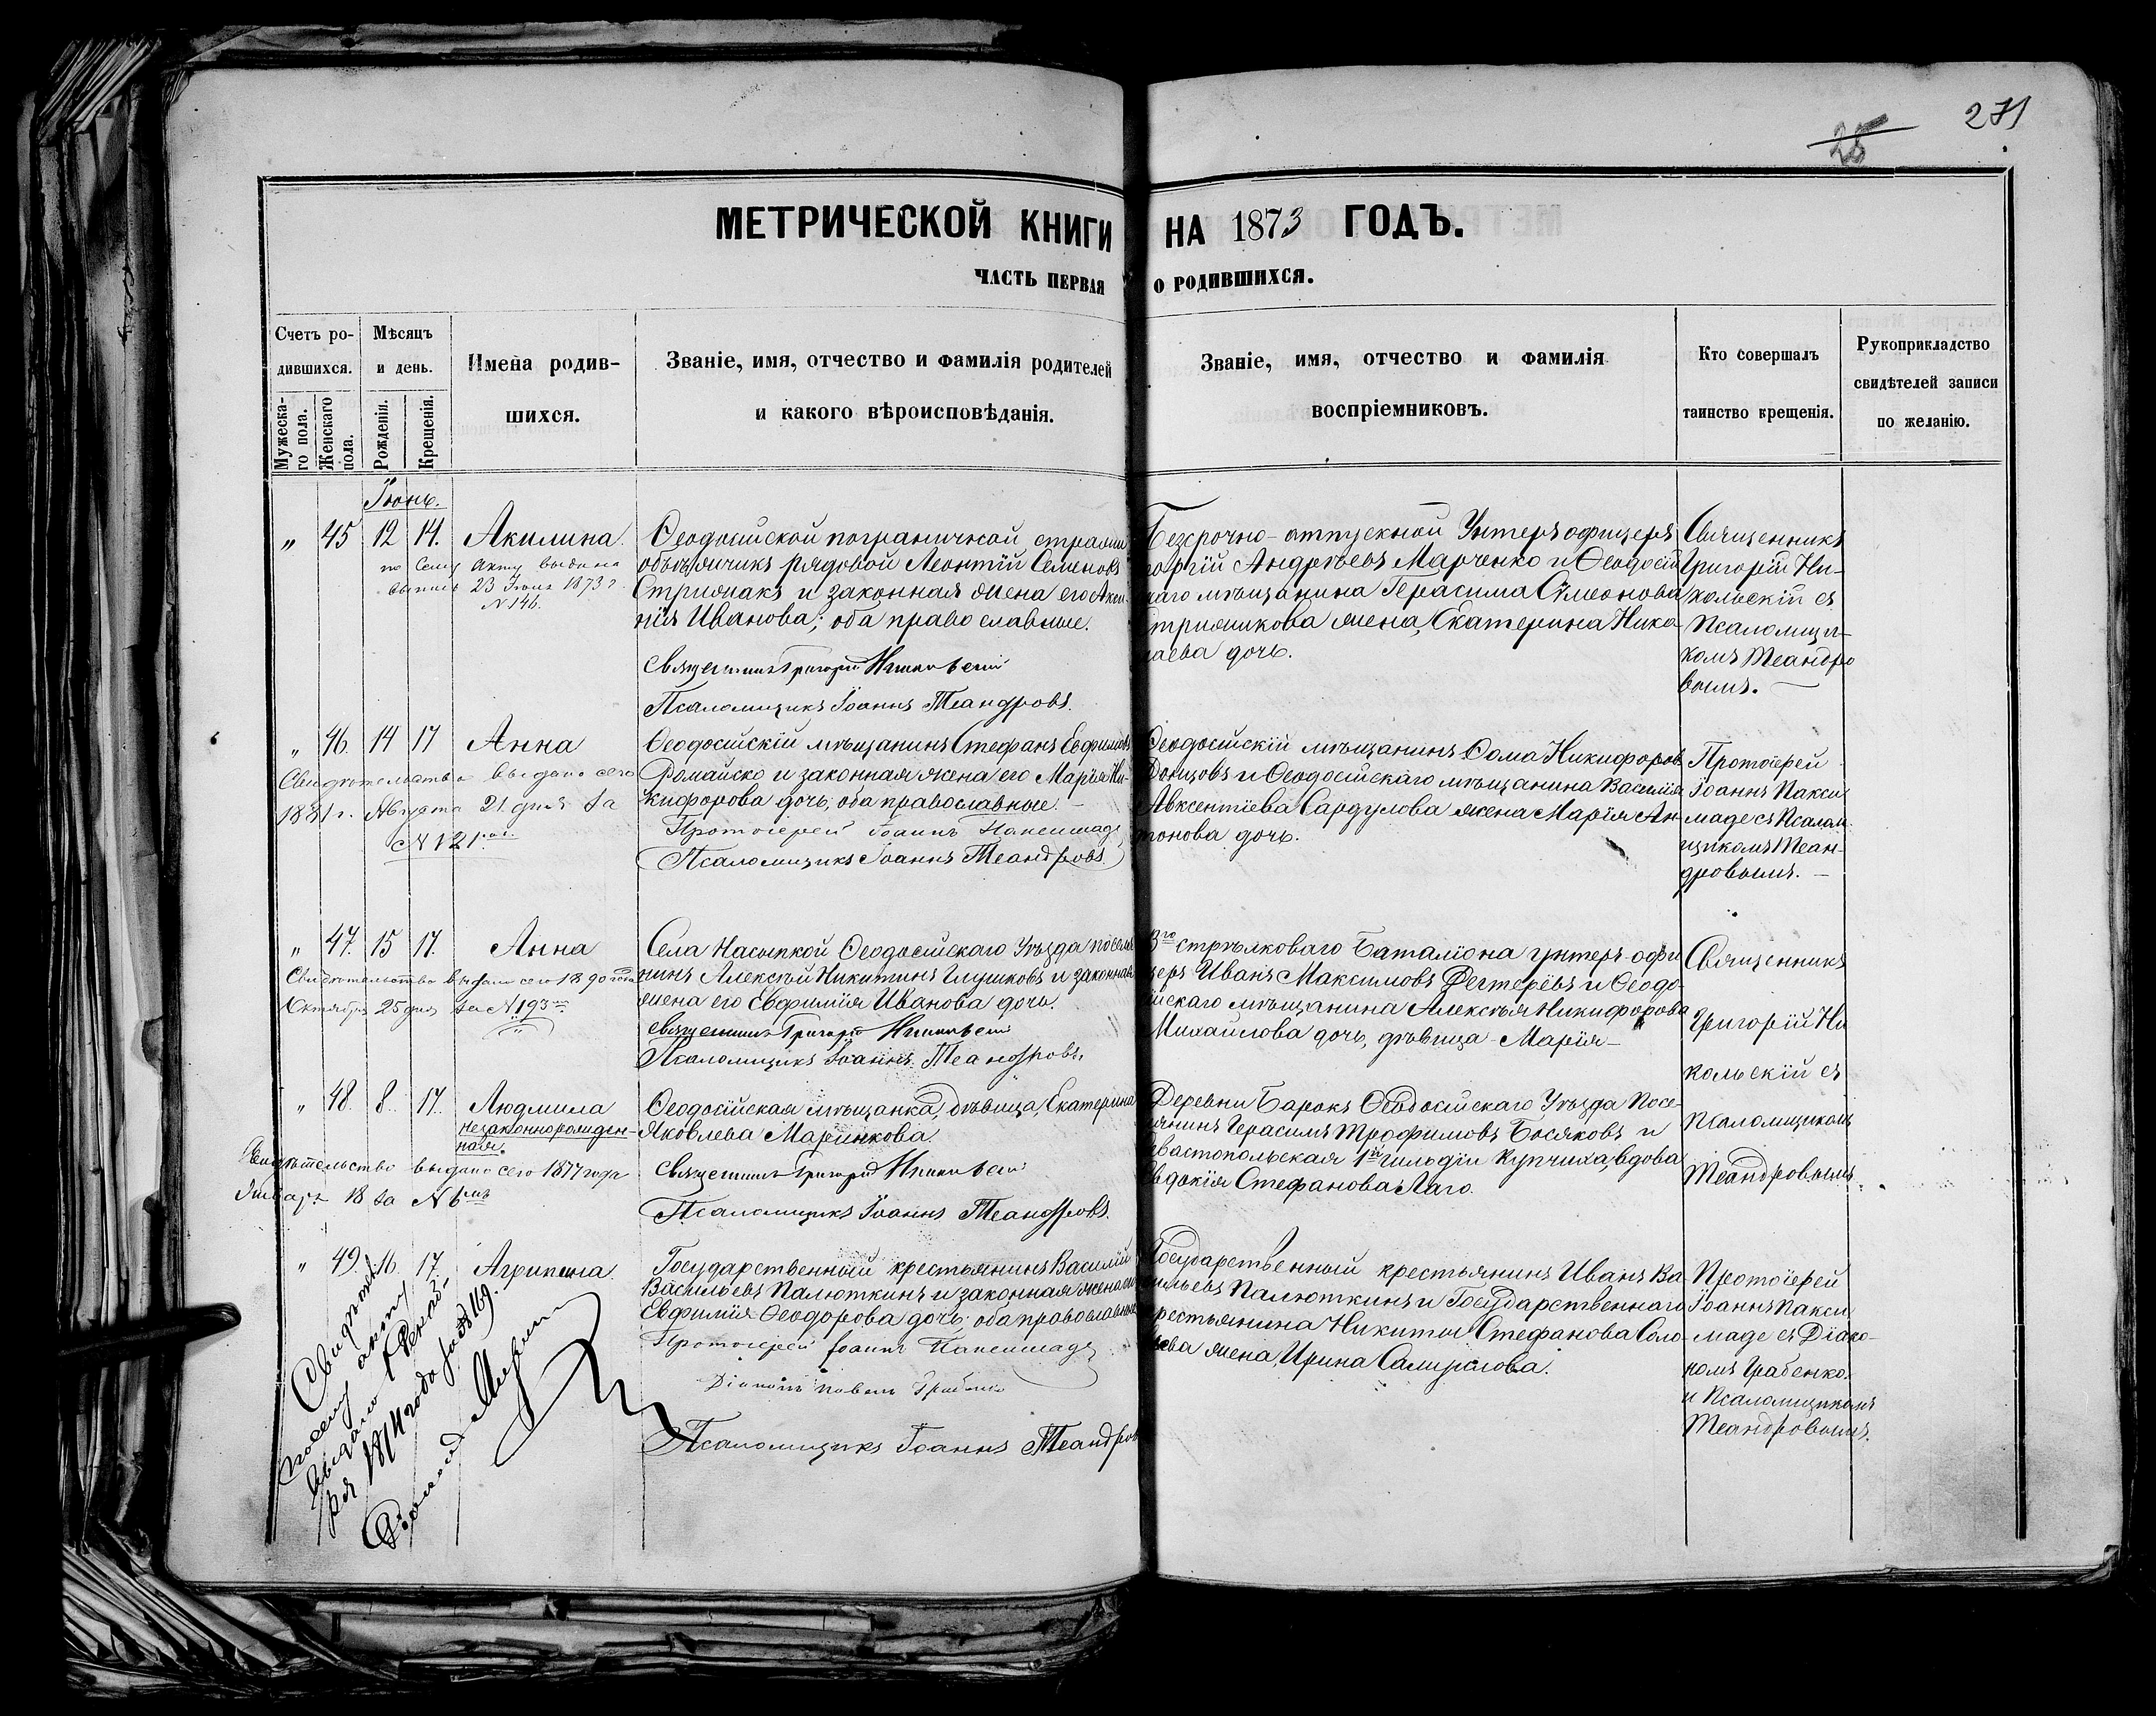 271
25
МЕТРИЧЕСКОЙ КНИГИ НА 1873 ГОДЪ.
ЧАСТЬ ПЕРВАЯ О РОДИВШИХСЯ.
Счетъ ро-
дившихся.
Мужеска-
го пола.
Женскаго
пола.
Мѣсяцъ
и день.
Рожденія.
Крещенія.
Имена родив-
шихся.
Званіе, имя, отчество и фамилія родителей
и какого вѣроисповѣданія.
Званіе, имя, отчество и фамилія
воспріемниковъ.
Кто совершалъ
таинство крещенія.
Рукоприкладство
свидѣтелей записи
по желанію.
Іюнь.
„ 45 12 14. Акилина.
по Сему акту выдана
выпись 23 Іюня 1873 г
N 146.
Ѳеодосійской пограничной стражи
объѣзчикъ рядовой Леонтій Семеновъ
Стрижакъ и законная жена его Аксе-
нія Иванова; оба православные.
Священникъ Григорій Никольскій
Псаломщикъ Іоаннъ Теандровъ.
Безсрочно-отпускной Унтеръ офицеръ
оргій Андреевъ Марченко и Ѳеодосій
скаго мѣщанина Герасима Сѵмеонова
трижикова жена, Екатерина Нико-
лаева дочь.
Священникъ
Григорій Ни-
кольскій съ
Псаломщи-
комъ Теандро
вымъ. —
„ 46. 14 17 Анна
Свидѣтельство выдано сего
1881 г. Августа 21 дня за
№ 121
Ѳеодосійскій мѣщанинъ Стефанъ Евфимовъ
Ромайско и законная жена его Марія Ни-
кифорова дочь, оба православные. —
Протоіерей Іоаннъ Паксимаде
Псаломщикъ Іоаннъ Теандровъ.
Ѳеодосійскій мѣщанинъ Ѳома Никифоровъ
Донцовъ и Ѳеодосійскаго мѣщанина Василія
Авксентіева Сардулова жена Марія Ан-
тонова дочь.
Протоіерей
Іоаннъ Пакси
маде съ Псалом-
щикомъ Теан-
дровымъ. —
„ 47. 15 17. Анна
Свидѣтельство выдано сего 1890 года
Октября 25 дня за № 193
Села Насыпкой Ѳеодосійскаго Уѣзда поселя
нинъ Алексѣй Никитинъ Глушковъ и законная
жена его Евфимія Иванова дочь.
Священникъ Григорій Никольскій
Псаломщикъ Іоаннъ Теандровъ.
3го стрѣлковаго Баталіона унтеръ-офи
церъ Иванъ Максимовъ Дегтеревъ и Ѳеодо-
сійскаго мѣщанина Алексѣя Никифорова
Михайлова дочь, дѣвица Марія —
Священникъ
Григорій Ни
кольскій съ
Псаломщикомъ
Теандровымъ.
„ 48. 8. 17. Людмила
незаконнорожден-
ная.
Свидѣтельство выдано сего 1877 года
Января 18 за № 6
Ѳеодосійская мѣщанка, дѣвица, Екатерина
Яковлева Маринкова.
Священникъ Григорій Никольскій
Псаломщикъ Іоаннъ Теандровъ.
Деревни Баракъ Ѳеодосійскаго Уѣзда посе-
лянинъ Герасимъ Трофимовъ Босяковъ и
Севастопольская 1й гильдіи купчиха, вдова
Евдокія Стефанова Лаго.
„ 49. 16. 17. Агрипина.
Свидѣтель
по сему акту
выдано 1 Нояб-
ря 1874 года за № 169.
Государственный крестьянинъ Василій
Васильевъ Палюткинъ и законная жена его
Евфимія Ѳеодорова дочь; оба православные
Протоіерей Іоаннъ Паксимаде
Діаконъ Павелъ Грабенко
Псаломщикъ Іоаннъ Теандров
Государственный крестьянинъ Иванъ Ва-
сильевъ Палюткинъ и Государственнаго
крестьянина Никиты Стефанова Соло-
вьева жена, Ирина Самуилова.
Протоіерей
Іоаннъ Пакси
маде съ Діако-
номъ Грабенко.
и Псаломщикомъ
Теандровымъ.